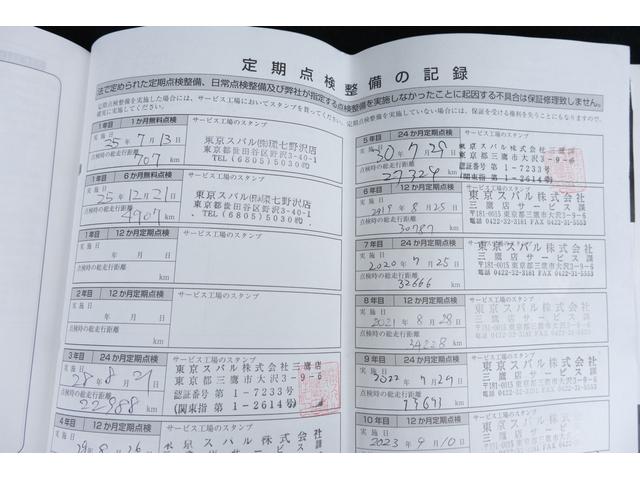 定期点検整備の記録
法で定められた定期点検整備、日常点検整備及び弊社が指定する点検整備を実施しなかったことに起因する不具合は保証修理致しません。
定期点検整備を実施した場合には、サービス工場においてスタンプを
定期点検整備を実施していない場合は、保証を受ける権利を失うことにもなりますので、
確実に実施してください。
1年目 1か月無料点検 サービス工場のスタンプ
実施日 25年7月13日
点検時の総走行距離
707 km
東京スバル㈱環七野沢店
東京都世田谷区野沢3-40-1
TEL(6805)5030㈹
1年目 6か月無料点検 サービス工場のスタンプ
実施日 25年12月21日
点検時の総走行距離
4907 km
東京スバル㈱環七野沢店
東京都世田谷区野沢3-40-1
TEL(6805)5030㈹
1年目 12か月定期点検 サービス工場のスタンプ
実施日 年 月 日
点検時の総走行距離
km
2年目 12か月定期点検 サービス工場のスタンプ
実施日 年 月 日
点検時の総走行距離
km
3年目 24か月定期点検 サービス工場のスタンプ
実施日 28年8月21日
点検時の総走行距離
22988 km
東京スバル株式会社三鷹店
東京都三鷹市大沢3-9-6
認証番号 第1-7233号
(関東指 第1-2614号)
4年目 12か月定期点検 サービス工場のスタンプ
実施日 29年8月26日
東京スバル株式会社
5年目 24か月定期点検 サービス工場のスタンプ
実施日 30年7月29日
点検時の総走行距離
27324 km
東京スバル株式会社三鷹店
東京都三鷹市大沢3-9-6
認証番号 第1-7233号
(関東指 第1-2614号)
6年目 12か月定期点検 サービス工場のスタンプ
実施日 2019年8月25日
点検時の総走行距離
30787 km
東京スバル株式会社
三鷹店サービス課
〒181-0015 東京都三鷹市大沢3-9-6
電話 0422-32-3181 FAX 0422-31-5553
7年目 24か月定期点検 サービス工場のスタンプ
実施日 2020年7月25日
点検時の総走行距離
32666 km
東京スバル株式会社
三鷹店サービス課
〒181-0015 東京都三鷹市大沢3-9-6
電話 0422-32-3181 FAX 0422-31-5553
8年目 12か月定期点検 サービス工場のスタンプ
実施日 2021年8月28日
点検時の総走行距離
34228 km
東京スバル株式会社
三鷹店サービス課
〒181-0015 東京都三鷹市大沢3-9-6
電話 0422-32-3181 FAX 0422-31-5553
9年目 24か月定期点検 サービス工場のスタンプ
実施日 2022年7月29日
点検時の総走行距離
km
東京スバル株式会社
三鷹店サービス課
〒181-0015 東京都三鷹市大沢3-9-6
電話 0422-32-3181 FAX 0422-31-5553
10年目 12か月定期点検 サービス工場のスタンプ
実施日 2023年9月10日
東京スバル株式会社
三鷹店サービス課